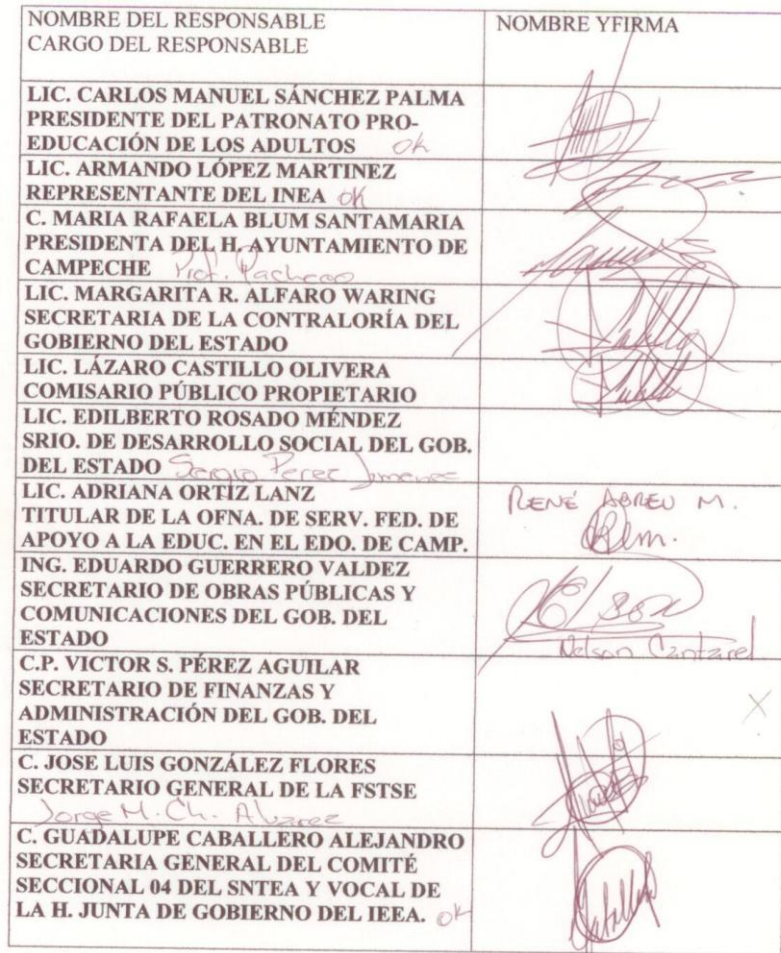 NOMBRE DEL RESPONSABLE
CARGO DEL RESPONSABLE
NOMBRE YFIRMA
LIC. CARLOS MANUEL SÁNCHEZ PALMA
PRESIDENTE DEL PATRONATO PRO-
EDUCACIÓN DE LOS ADULTOS ok
LIC. ARMANDO LÓPEZ MARTINEZ
REPRESENTANTE DEL INEA ok
C. MARIA RAFAELA BLUM SANTAMARIA
PRESIDENTA DEL H. AYUNTAMIENTO DE
CAMPECHE Prof. Pacheco
LIC. MARGARITA R. ALFARO WARING
SECRETARIA DE LA CONTRALORÍA DEL
GOBIERNO DEL ESTADO
LIC. LÁZARO CASTILLO OLIVERA
COMISARIO PÚBLICO PROPIETARIO
LIC. EDILBERTO ROSADO MÉNDEZ
SRIO. DE DESARROLLO SOCIAL DEL GOB.
DEL ESTADO Sergio Perez Jimenez
LIC. ADRIANA ORTIZ LANZ
TITULAR DE LA OFNA. DE SERV. FED. DE
APOYO A LA EDUC. EN EL EDO. DE CAMP.
RENÉ ABREU M.
ING. EDUARDO GUERRERO VALDEZ
SECRETARIO DE OBRAS PÚBLICAS Y
COMUNICACIONES DEL GOB. DEL
ESTADO
Nelson Cantarel
C.P. VICTOR S. PÉREZ AGUILAR
SECRETARIO DE FINANZAS Y
ADMINISTRACIÓN DEL GOB. DEL
ESTADO
X
C. JOSE LUIS GONZÁLEZ FLORES
SECRETARIO GENERAL DE LA FSTSE
Jorge M. Ch. Alvarez
C. GUADALUPE CABALLERO ALEJANDRO
SECRETARIA GENERAL DEL COMITÉ
SECCIONAL 04 DEL SNTEA Y VOCAL DE
LA H. JUNTA DE GOBIERNO DEL IEEA. ok